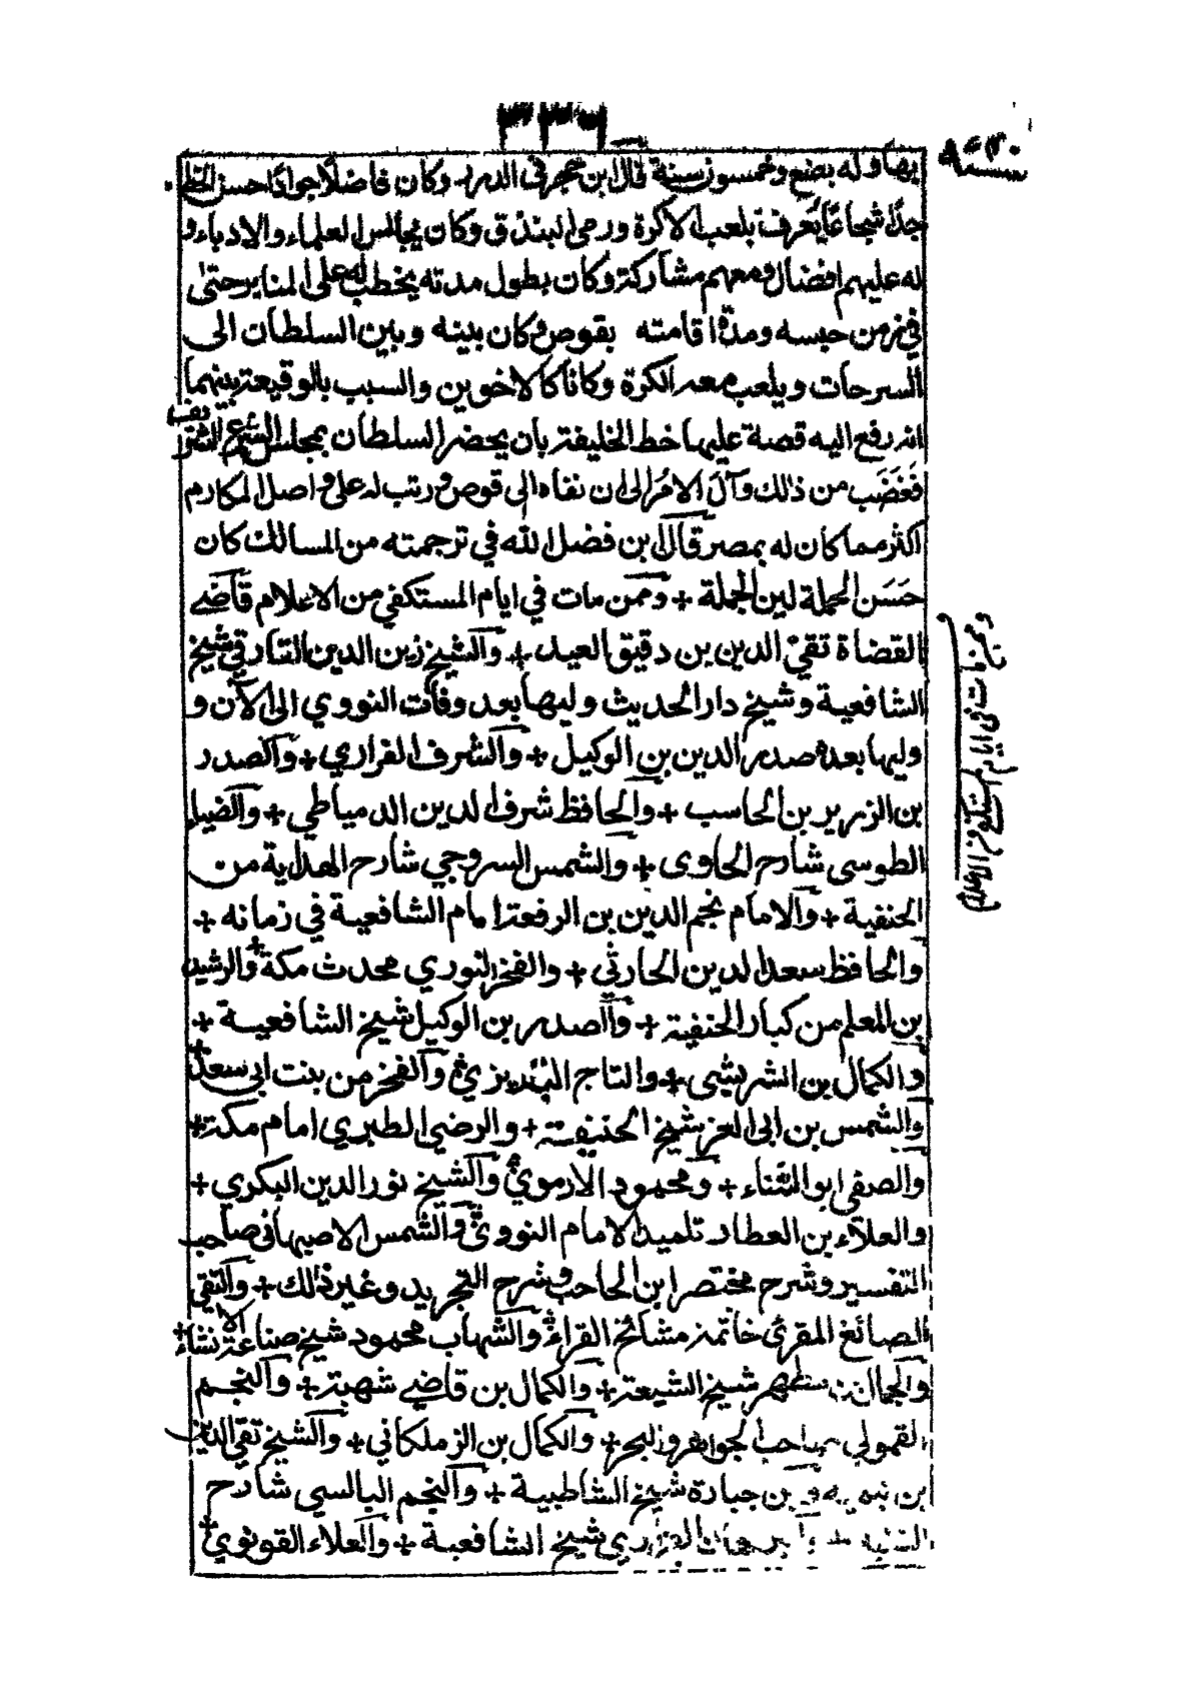 ٣٣٦
بها وله بضع وخمسون سنة قال ابن حجر في الدرر وكان فاضلا جوادا حسن الخط
جدا شجاعا يُعرف بلعب الاكرة ورمي البندق وكان يجالس العلماء والادباء و
له عليهم افضال ومعهم مشاركة وكان بطول مدته يخطب له على المنابر حتى
في زمن حبسه ومدة اقامته بقوص وكان بينه وبين السلطان الى
السرحات ويلعب معه الكرة وكانا كالاخوين والسبب بالوقيعة بينهما
انه رفع اليه قصة عليها خط الخليفة بان يحضر السلطان بمجلس الشرع الشريف
فَغَضَب من ذلك وآل الامرُ الى ان نفاه الى قوص ورتب له على واصل المكارم
اكثر مما كان له بمصر قال ابن فضل الله في ترجمته من المسالك كان
حَسَن الحملة لين الجملة + وممن مات في ايام المستكفي من الاعلام قاضي
القضاة تقي الدين بن دقيق العيد + والشيخ زين الدين الفارقي شيخ
الشافعية وشيخ دار الحديث وليها بعد وفات النووي الى الآن و
وليها بعده صدر الدين بن الوكيل + والشرف الفزاري + والصدر
بن الزرير بن الحاسب + والحافظ شرف الدين الدمياطي + والضياء
الطوسى شارح الحاوى + والشمس السروجي شارح الهداية من
الحنفية + والامام نجم الدين بن الرفعة امام الشافعية في زمانه +
والحافظ سعد الدين الحارثي + والفخر النوري محدث مكة + والرشيد
بن المعلم من كبار الحنفية + والصدر بن الوكيل شيخ الشافعية +
والكمال بن الشريشى + والتاج التبريزي + والفخر من بنت ابى سعد +
والشمس بن ابى العز شيخ الحنيفة + والرضي الطبري امام مكة +
والصفي ابو الثناء + ومحمود الارموي + والشيخ نور الدين البكري +
والعلاء بن العطار تلميذ الامام النووي + والشمس الاصبهانى صاحب
التفسير وشرح مختصر ابن الحاجب وشرح التجريد وغير ذلك + والتقي
الصائغ المقرئ خاتمة مشائخ القراء + والشهاب محمود شيخ صناعة الانشاء +
والجمال بن مطهر شيخ الشيعة + والكمال بن قاضي شهبة + والنجم
القمولي صاحب الجواهر والبحر + والكمال بن الزملكاني + والشيخ تقي الدين
بن تيمية و بن جبارة شيخ الشاطبية + والنجم البالسي شارح
التنبيه + والبرهان الفزاري شيخ الشافعية + والعلاء القونوي +
وممن مات في ايام المستكفي من الاعلام